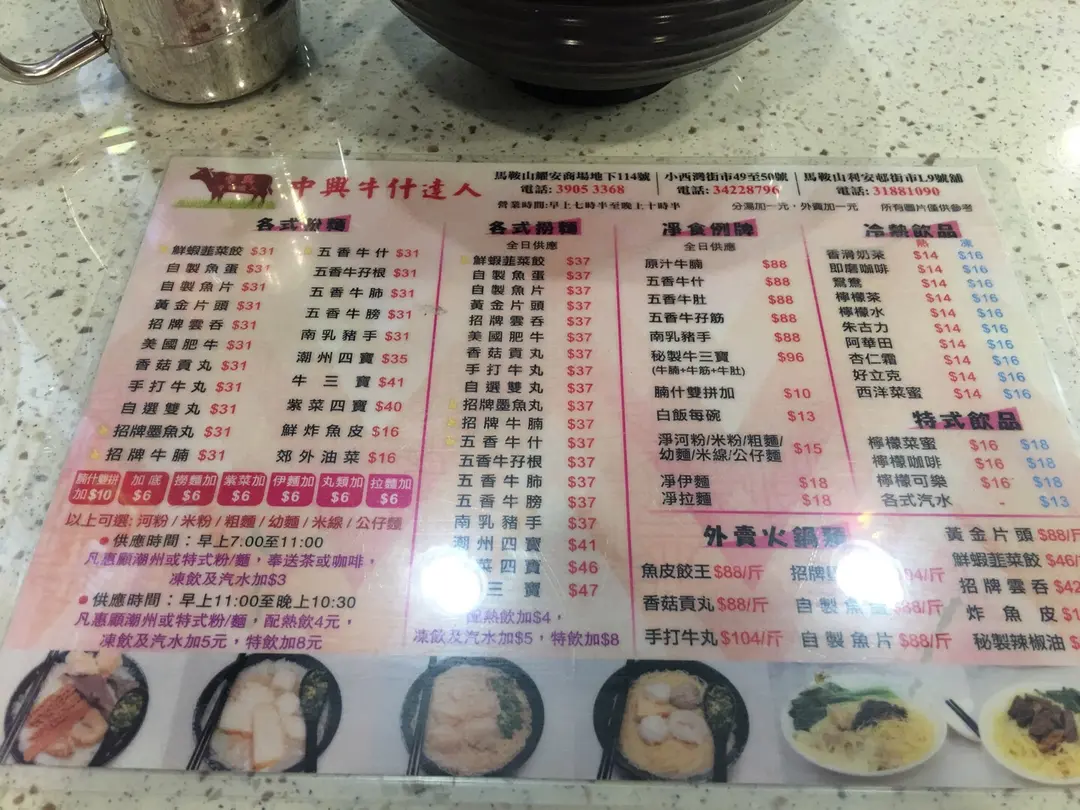 中興牛什達人
馬鞍山耀安商場地下114號
電話: 3905 3368
小西灣街市49至50號
電話: 34228796
馬鞍山利安邨街市1.9號舖
電話: 31881090
營業時間:早上七時半至晚上十時半
分湯加一元，外賣加一元
所有圖片僅供參考
各式粉麵
鮮蝦韮菜餃 $31
自製魚蛋 $31
自製魚片 $31
黃金片頭 $31
招牌雲吞 $31
美國肥牛 $31
香菇貢丸 $31
手打牛丸 $31
自選雙丸 $31
招牌墨魚丸 $31
招牌牛腩 $31
五香牛什 $31
五香牛孖根 $31
五香牛肺 $31
五香牛膀 $31
南乳豬手 $31
潮州四寶 $35
牛三寶 $41
紫菜四寶 $40
鮮炸魚皮 $16
郊外油菜 $16
腩什雙拼加$10
加底 $6
撈麵加 $6
紫菜加 $6
伊麵加 $6
丸類加 $6
拉麵加 $6
以上可選: 河粉 / 米粉 / 粗麵 / 幼麵 / 米線 / 公仔麵
●供應時間：早上7.00至11:00
凡惠顧潮州或特式粉/麵，奉送茶或咖啡，
凍飲及汽水加$3
●供應時間：早上11:00至晚上10:30
凡惠顧潮州或特式粉/麵，配熱飲4元，
凍飲及汽水加5元，特飲加8元
各式撈麵
全日供應
鮮蝦韮菜餃 $37
自製魚蛋 $37
自製魚片 $37
黃金片頭 $37
招牌雲吞 $37
美國肥牛 $37
香菇貢丸 $37
手打牛丸 $37
自選雙丸 $37
招牌墨魚丸 $37
招牌牛腩 $37
五香牛什 $37
五香牛孖根 $37
五香牛肺 $37
五香牛膀 $37
南乳豬手 $37
潮州四寶 $41
菜四寶 $46
三寶 $47
配熱飲加$4，
凍飲及汽水加$5，特飲加$8
淨食例牌
全日供應
原汁牛腩 $88
五香牛什 $88
五香牛肚 $88
五香牛孖筋 $88
南乳豬手 $88
秘製牛三寶 $96
(牛腩+牛筋+牛肚)
腩什雙拼加 $10
白飯每碗 $13
淨河粉/米粉/粗麵/
幼麵/米線/公仔麵 $15
淨伊麵 $18
淨拉麵 $18
冷熱飲品
熱 凍
香滑奶茶 $14 $16
即磨咖啡 $14 $16
鴛鴦 $14 $16
檸檬茶 $14 $16
檸檬水 $14 $16
朱古力 $14 $16
阿華田 $14 $16
杏仁霜 $14 $16
好立克 $14 $16
西洋菜蜜 $14 $16
特式飲品
檸檬菜蜜 $16 $18
檸檬咖啡 $16 $18
檸檬可樂 $16 $18
各式汽水 - $13
外賣火鍋類
魚皮餃王 $88/斤
香菇貢丸 $88/斤
手打牛丸 $104/斤
招牌 94/斤
自製魚 $88/斤
自製魚片 $88/斤
黃金片頭 $88/斤
鮮蝦韮菜餃 $46/
招牌雲吞 $42
炸魚皮 $1
秘製辣椒油 $